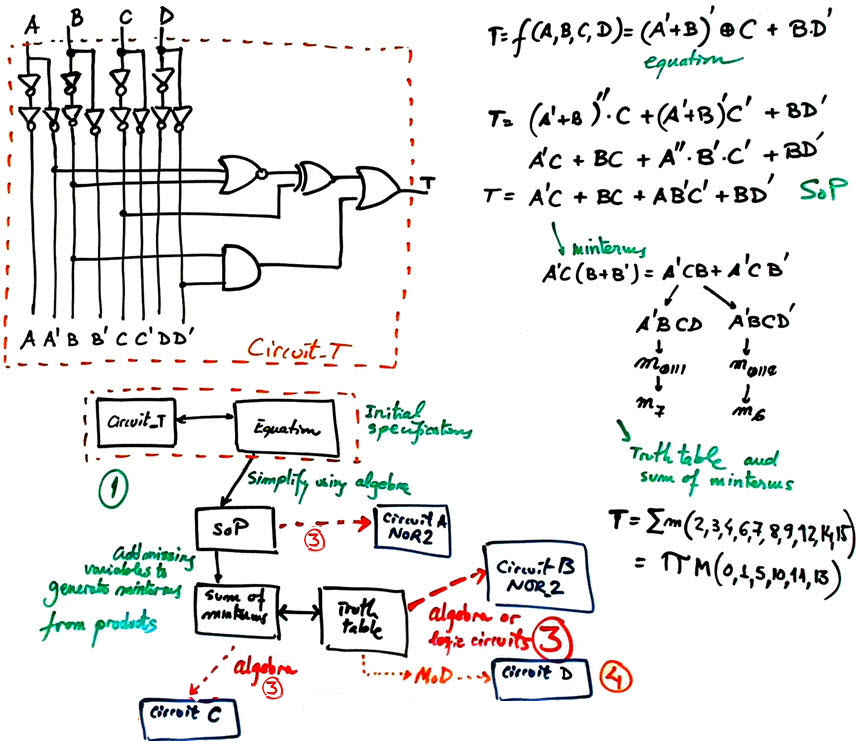 A B C D
T
A A' B B' C C' D D'
Circuit_T
T = f(A,B,C,D) = (A'+B)' ⊕ C + B·D'
equation
T = (A'+B)''·C + (A'+B)'C' + BD'
A'C + BC + A''·B'·C' + BD'
T = A'C + BC + AB'C' + BD' SoP
minterms
A'C(B+B') = A'CB + A'CB'
A'BCD A'BCD'
m0111 m0110
m7 m6
Truth table and
sum of minterms
T = Σm(2,3,4,6,7,8,9,12,14,15)
= ΠM(0,1,5,10,11,13)
Circuit_T
Equation
Initial
specifications
1
Simplify using algebra
SoP
3
Circuit A
NOR2
Add missing
variables to
generate minterms
from products
Sum of
minterms
Truth
table
Circuit B
NOR_2
algebra or
logic circuits 3
algebra
3
MoD
Circuit D
4
Circuit C